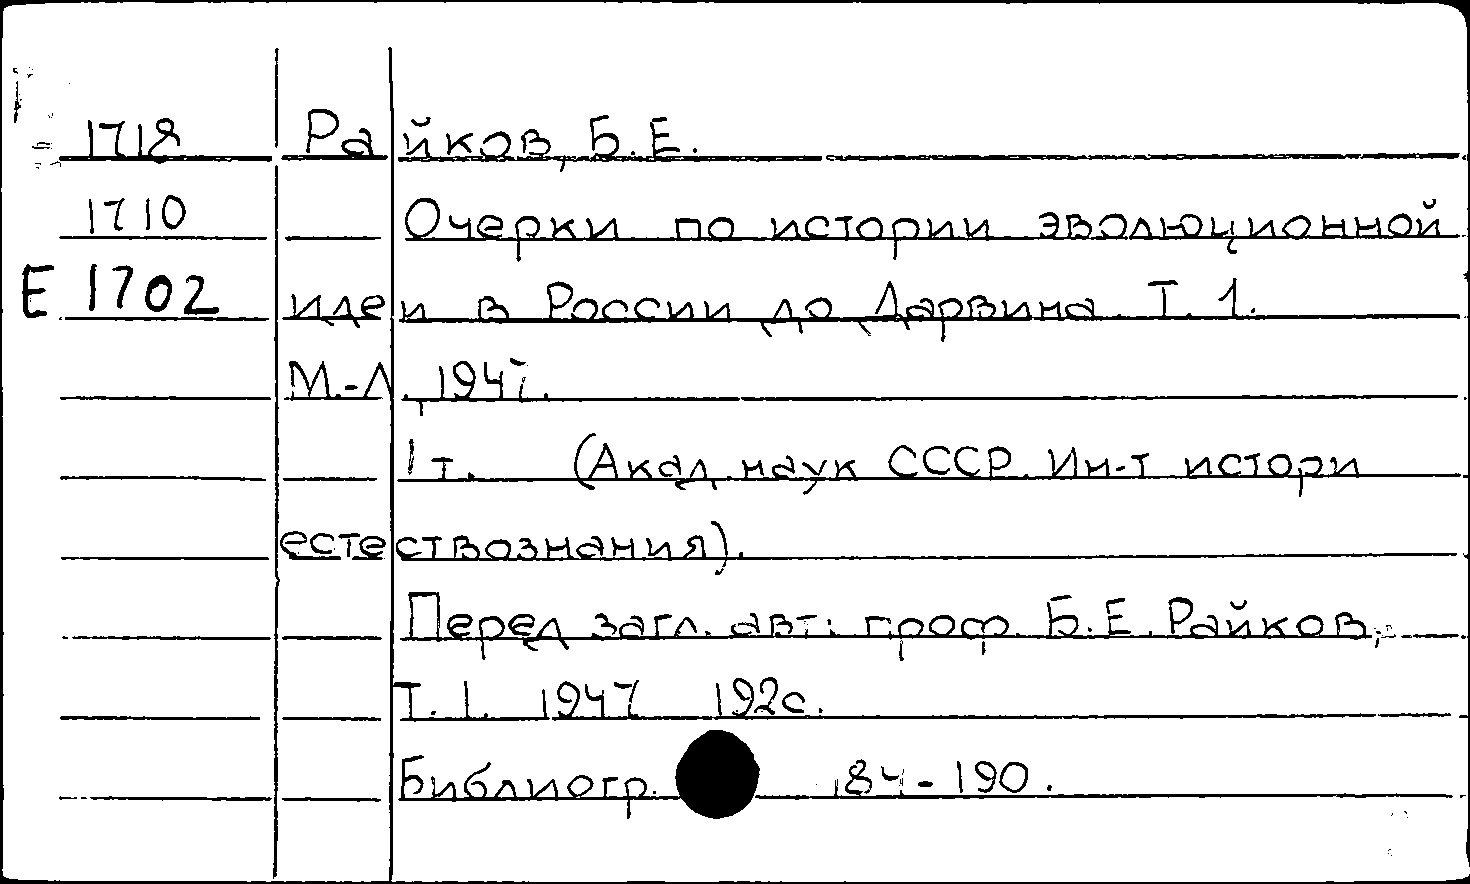 1718 Райков, Б.Е.
1710 Очерки по истории эволюционной
Е 1702 идеи в России до Дарвина. Т. 1.
М.-Л., 1947.
1 т. (Акад. наук СССР. Ин-т истори
естествознания).
Перед загл. авт: проф. Б.Е. Райков.
Т. 1. 1947 192с.
Библиогр. 184-190.